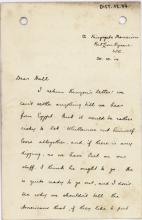 DIST. 42.44
2 Kingsgate Mansions
Red Lion Square
W.C.
Dear Hall
I return Kenyon's letter: we
can't settle anything till we hear
from Egypt but it would be rather
risky to let Whittemore and himself
loose altogether and if there is any
digging, so we have that on our
staff. I think he ought to go. He
is quite ready to go out, and I don't
see why we shouldn't tell the
Americans that, if they like to post